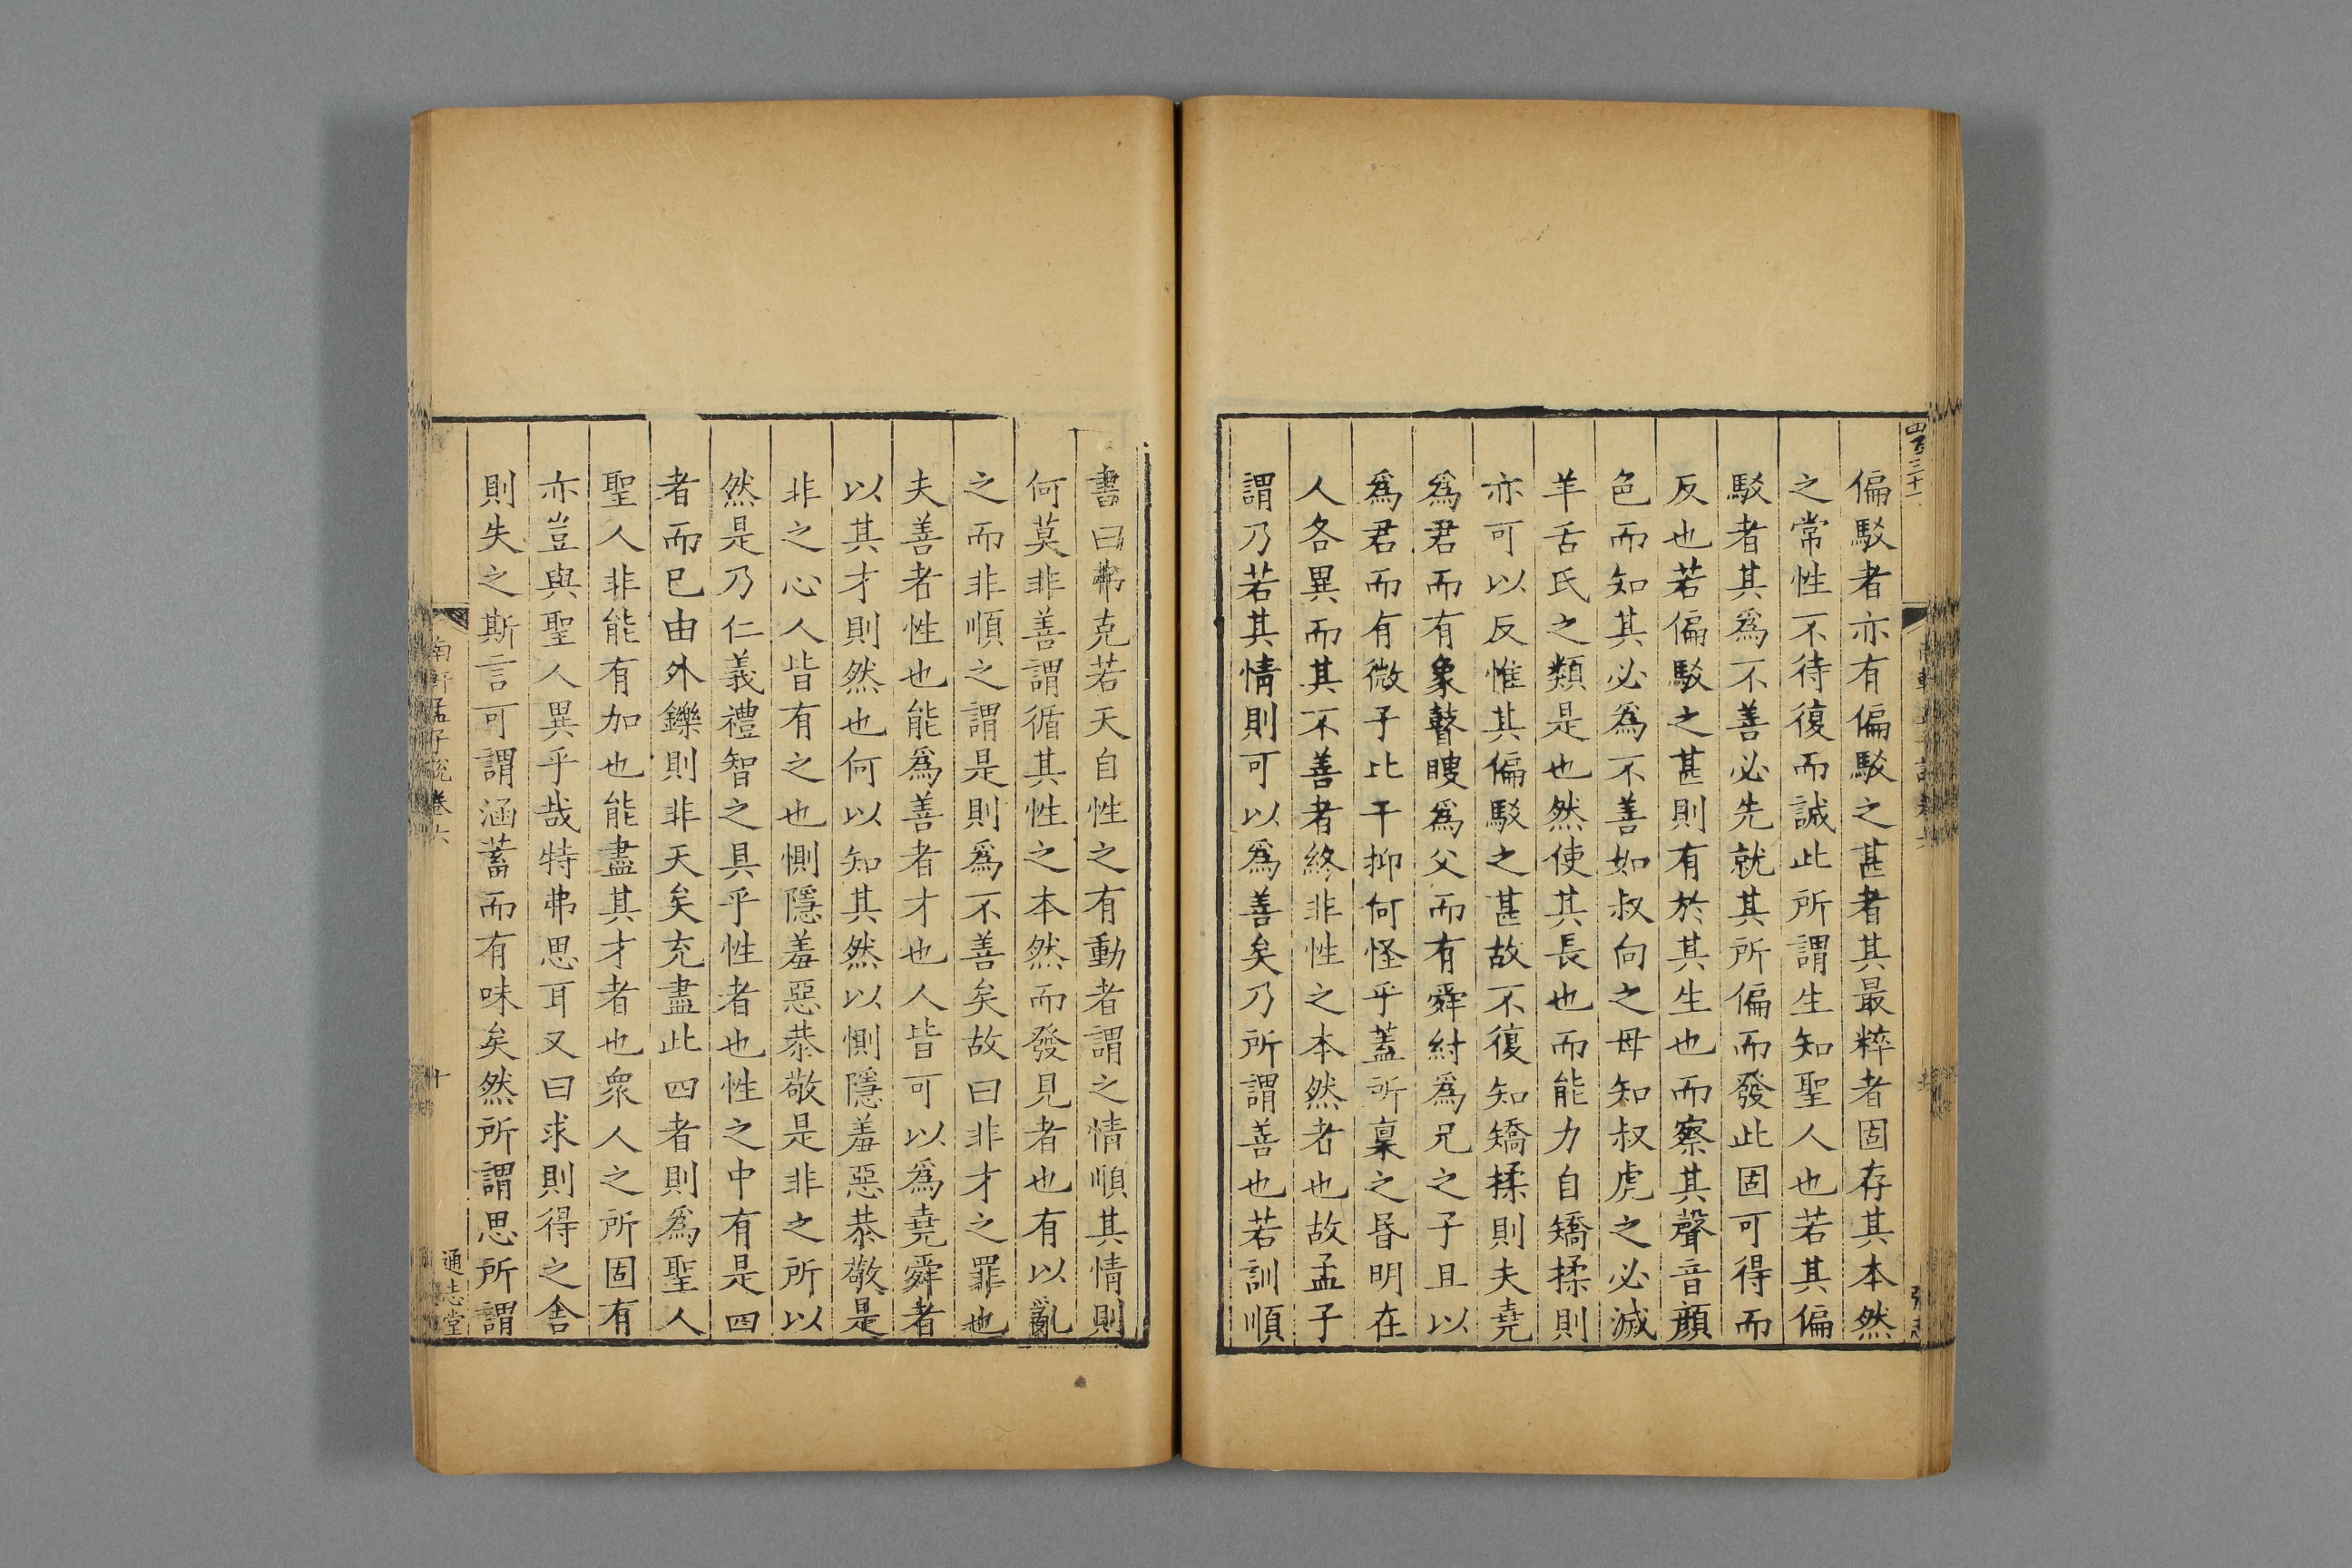 四百三十一
偏駁者亦有偏駁之甚者其最粹者固存其本然
之常性不待復而誠此所謂生知聖人也若其偏
駁者其爲不善必先就其所偏而發此固可得而
反也若偏駁之甚則有於其生也而察其聲音顔
色而知其必爲不善如叔向之母知叔虎之必滅
羊舌氏之類是也然使其長也而能力自矯揉則
亦可以反惟其偏駁之甚故不復知矯揉則夫堯
爲君而有象瞽瞍爲父而有舜紂爲兄之子且以
爲君而有微子比干抑何怪乎蓋所稟之昬明在
人各異而其不善者終非性之本然者也故孟子
謂乃若其情則可以爲善矣乃所謂善也若訓順
書曰弗克若天自性之有動者謂之情順其情則
何莫非善謂循其性之本然而發見者也有以亂
之而非順之謂是則爲不善矣故曰非才之罪也
夫善者性也能爲善者才也人皆可以爲堯舜者
以其才則然也何以知其然以惻隱羞惡恭敬是
非之心人皆有之也惻隱羞惡恭敬是非之所以
然是乃仁義禮智之具乎性者也性之中有是四
者而已由外鑠則非天矣充盡此四者則爲聖人
聖人非能有加也能盡其才者也衆人之所固有
亦豈與聖人異乎哉特弗思耳又曰求則得之舍
則失之斯言可謂涵蓄而有味矣然所謂思所謂
南軒孟子說卷六
十
通志堂